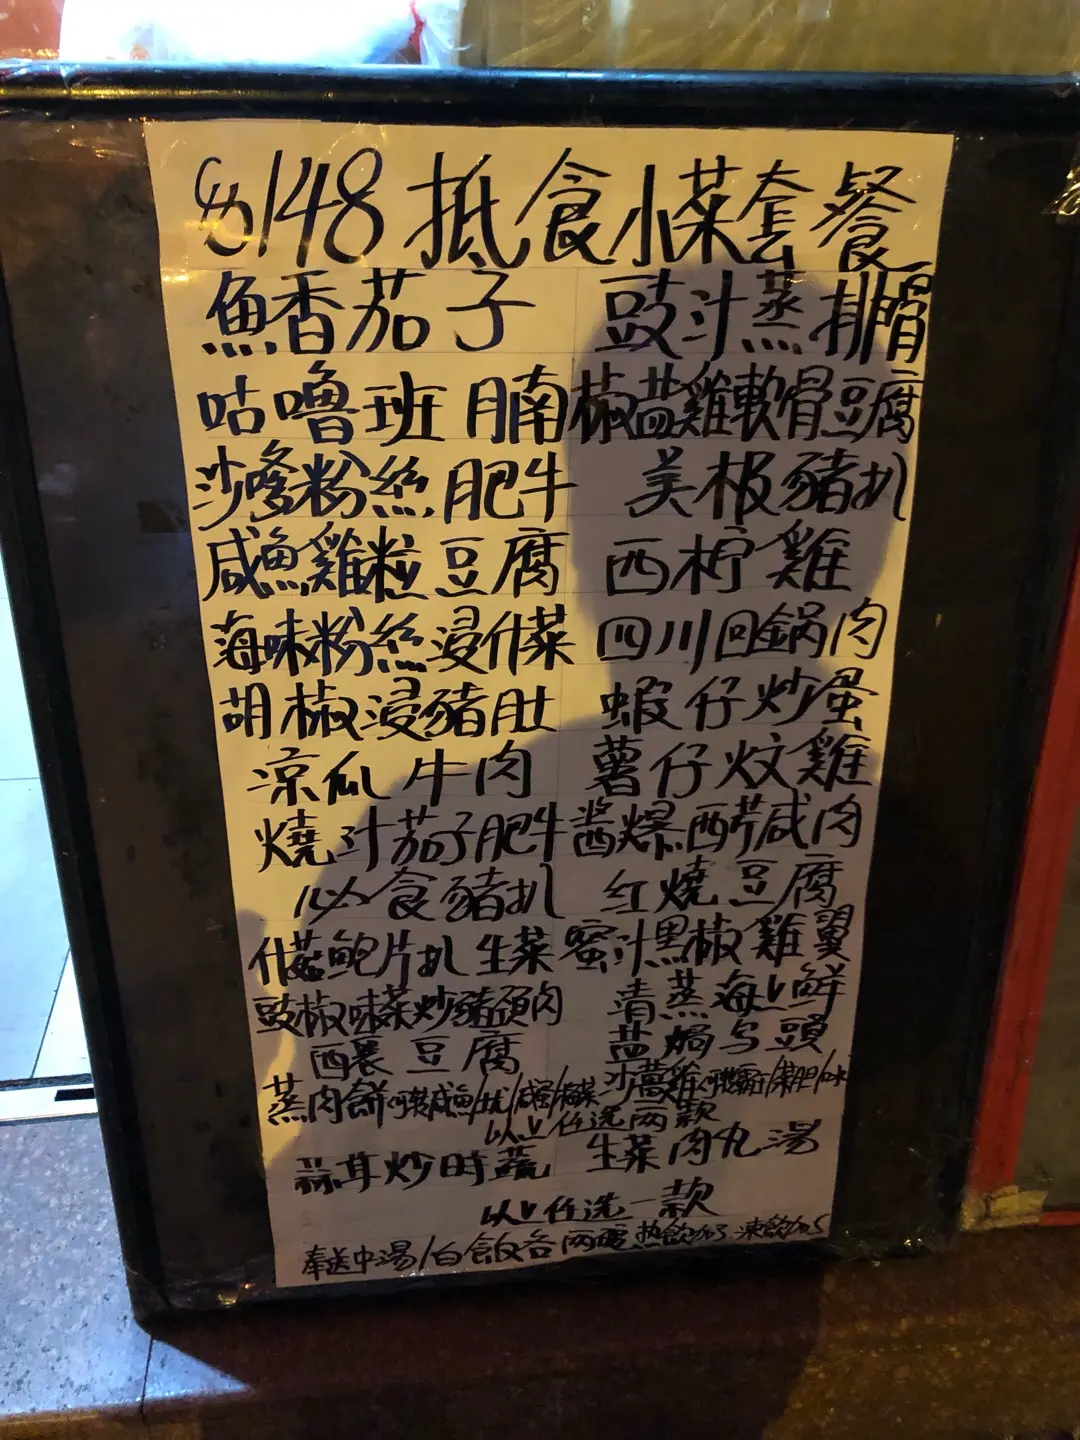 $148 抵食小菜套餐
魚香茄子 豉汁蒸排骨
咕嚕班腩 椒盐雞軟骨豆腐
沙爹粉絲肥牛 美极豬扒
咸魚雞粒豆腐 西柠雞
海味粉絲浸什菜 四川回鍋肉
胡椒浸豬肚 蝦仔炒蛋
涼瓜牛肉 薯仔炆雞
燒汁茄子肥牛 酱爆西芹咸肉
必食豬扒 红燒豆腐
什菇鮑片扒生菜 蜜汁黑椒雞翼
豉椒味菜炒豬頸肉 清蒸海上鮮
酿豆腐 盐焗乌頭
蒸肉餅 咸魚 沙薑雞
以上任选两款
蒜茸炒時蔬 生菜肉丸湯
以上任选一款
奉送中湯/白飯各两碗 热飲加3 凍飲加5